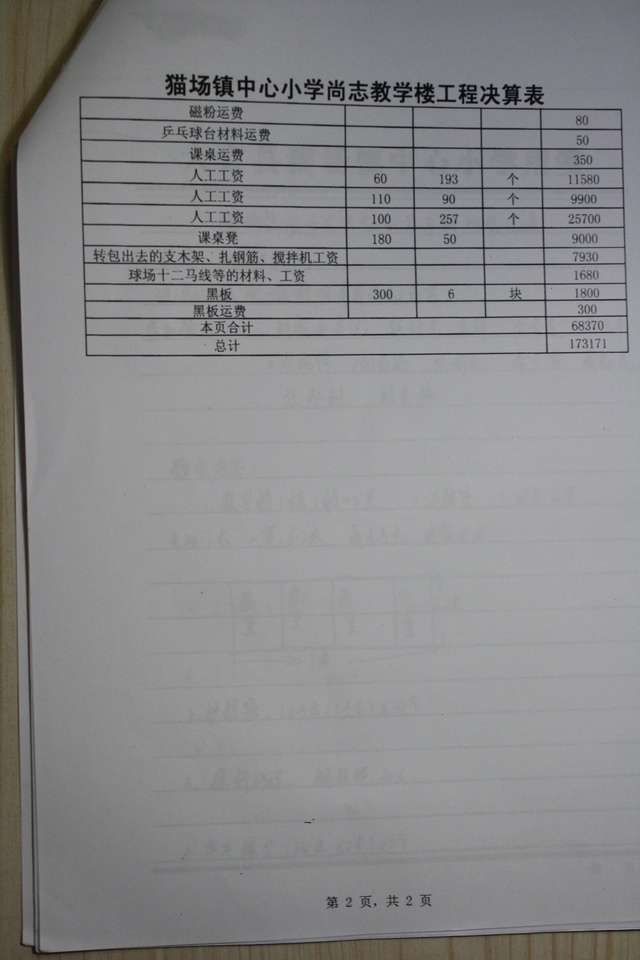 猫场镇中心小学尚志教学楼工程决算表
磁粉运费 80
乒乓球台材料运费 50
课桌运费 350
人工工资 60 193 个 11580
人工工资 110 90 个 9900
人工工资 100 257 个 25700
课桌凳 180 50 9000
转包出去的支木架、扎钢筋、搅拌机工资 7930
球场十二马线等的材料、工资 1680
黑板 300 6 块 1800
黑板运费 300
本页合计 68370
总计 173171
第 2 页，共 2 页